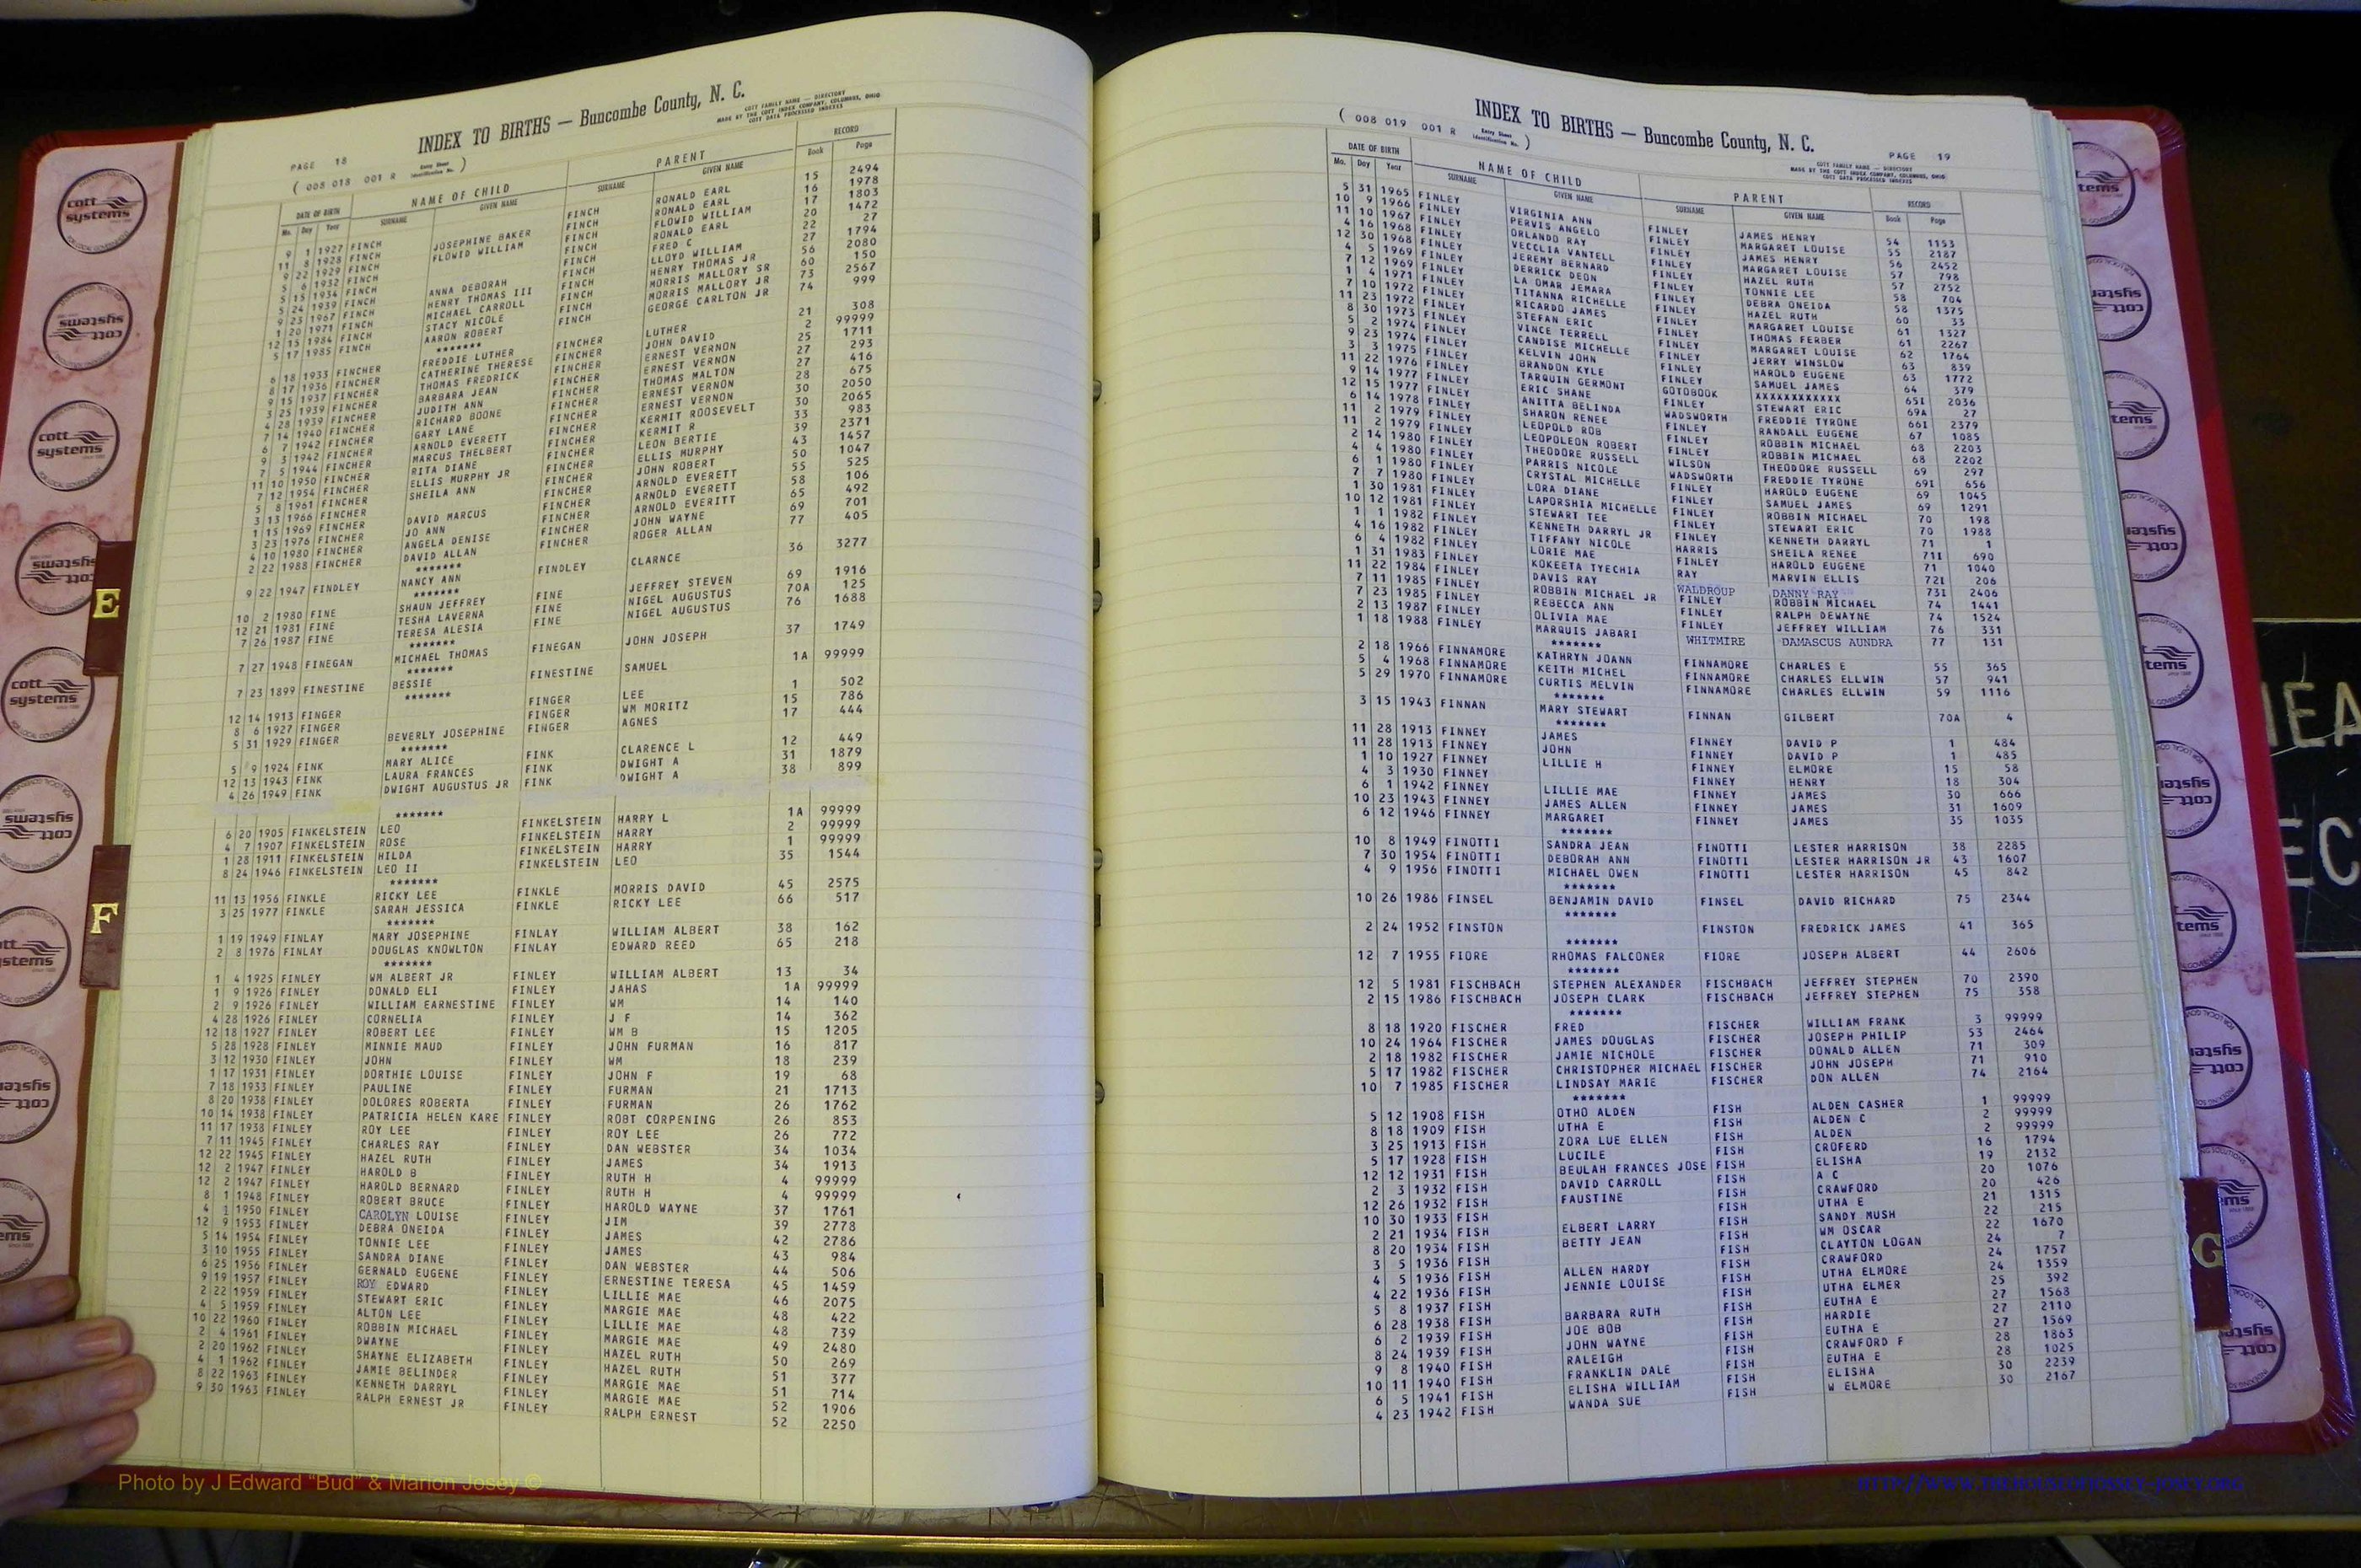 INDEX TO BIRTHS — Buncombe County, N. C.
COTT FAMILY NAME — DIRECTORY
MADE BY THE COTT INDEX COMPANY, COLUMBUS, OHIO
COTT DATA PROCESSED INDEXES
PAGE 18
( 008 018 001 R Entry Sheet Identification No. )
DATE OF BIRTH NAME OF CHILD PARENT RECORD
Mo. Day Year SURNAME GIVEN NAME SURNAME GIVEN NAME Book Page
9 1 1927 FINCH FINCH RONALD EARL 15 2494
11 8 1928 FINCH JOSEPHINE BAKER FINCH RONALD EARL 16 1978
9 22 1929 FINCH FLOWID WILLIAM FINCH FLOWID WILLIAM 17 1803
5 6 1932 FINCH FINCH RONALD EARL 20 1472
5 15 1934 FINCH FINCH FRED C 22 27
5 24 1939 FINCH ANNA DEBORAH FINCH LLOYD WILLIAM 27 1794
9 23 1967 FINCH HENRY THOMAS III FINCH HENRY THOMAS JR 56 2080
1 20 1971 FINCH MICHAEL CARROLL FINCH MORRIS MALLORY SR 60 150
12 15 1984 FINCH STACY NICOLE FINCH MORRIS MALLORY JR 73 2567
5 17 1985 FINCH AARON ROBERT FINCH GEORGE CARLTON JR 74 999
*******
6 18 1933 FINCHER FREDDIE LUTHER FINCHER LUTHER 21 308
8 17 1936 FINCHER CATHERINE THERESE FINCHER JOHN DAVID 2 99999
9 15 1937 FINCHER THOMAS FREDRICK FINCHER ERNEST VERNON 25 1711
3 25 1939 FINCHER BARBARA JEAN FINCHER ERNEST VERNON 27 293
4 28 1939 FINCHER JUDITH ANN FINCHER THOMAS MALTON 27 416
7 14 1940 FINCHER RICHARD BOONE FINCHER ERNEST VERNON 28 675
6 7 1942 FINCHER GARY LANE FINCHER ERNEST VERNON 30 2050
9 3 1942 FINCHER ARNOLD EVERETT FINCHER KERMIT ROOSEVELT 30 2065
7 5 1944 FINCHER MARCUS THELBERT FINCHER KERMIT R 33 983
11 10 1950 FINCHER RITA DIANE FINCHER LEON BERTIE 39 2371
7 12 1954 FINCHER ELLIS MURPHY JR FINCHER ELLIS MURPHY 43 1457
5 8 1961 FINCHER SHEILA ANN FINCHER JOHN ROBERT 50 1047
3 13 1966 FINCHER FINCHER ARNOLD EVERETT 55 525
1 15 1969 FINCHER DAVID MARCUS FINCHER ARNOLD EVERETT 58 106
3 23 1976 FINCHER JO ANN FINCHER ARNOLD EVERITT 65 492
4 10 1980 FINCHER ANGELA DENISE FINCHER JOHN WAYNE 69 701
2 22 1988 FINCHER DAVID ALLAN FINCHER ROGER ALLAN 77 405
*******
9 22 1947 FINDLEY NANCY ANN FINDLEY CLARNCE 36 3277
*******
10 2 1980 FINE SHAUN JEFFREY FINE JEFFREY STEVEN 69 1916
12 21 1981 FINE TESHA LAVERNA FINE NIGEL AUGUSTUS 70A 125
7 26 1987 FINE TERESA ALESIA FINE NIGEL AUGUSTUS 76 1688
*******
7 27 1948 FINEGAN MICHAEL THOMAS FINEGAN JOHN JOSEPH 37 1749
*******
7 23 1899 FINESTINE BESSIE FINESTINE SAMUEL 1A 99999
*******
12 14 1913 FINGER FINGER LEE 1 502
8 6 1927 FINGER FINGER WM MORITZ 15 786
5 31 1929 FINGER BEVERLY JOSEPHINE FINGER AGNES 17 444
*******
5 9 1924 FINK MARY ALICE FINK CLARENCE L 12 449
12 13 1943 FINK LAURA FRANCES FINK DWIGHT A 31 1879
4 26 1949 FINK DWIGHT AUGUSTUS JR FINK DWIGHT A 38 899
*******
6 20 1905 FINKELSTEIN LEO FINKELSTEIN HARRY L 1A 99999
4 7 1907 FINKELSTEIN ROSE FINKELSTEIN HARRY 2 99999
1 28 1911 FINKELSTEIN HILDA FINKELSTEIN HARRY 1 99999
8 24 1946 FINKELSTEIN LEO II FINKELSTEIN LEO 35 1544
*******
11 13 1956 FINKLE RICKY LEE FINKLE MORRIS DAVID 45 2575
3 25 1977 FINKLE SARAH JESSICA FINKLE RICKY LEE 66 517
*******
1 19 1949 FINLAY MARY JOSEPHINE FINLAY WILLIAM ALBERT 38 162
2 8 1976 FINLAY DOUGLAS KNOWLTON FINLAY EDWARD REED 65 218
*******
1 4 1925 FINLEY WM ALBERT JR FINLEY WILLIAM ALBERT 13 34
1 9 1926 FINLEY DONALD ELI FINLEY JAHAS 1A 99999
2 9 1926 FINLEY WILLIAM EARNESTINE FINLEY WM 14 140
4 28 1926 FINLEY CORNELIA FINLEY J F 14 362
12 18 1927 FINLEY ROBERT LEE FINLEY WM B 15 1205
5 28 1928 FINLEY MINNIE MAUD FINLEY JOHN FURMAN 16 817
3 12 1930 FINLEY JOHN FINLEY WM 18 239
1 17 1931 FINLEY DORTHIE LOUISE FINLEY JOHN F 19 68
7 18 1933 FINLEY PAULINE FINLEY FURMAN 21 1713
8 20 1938 FINLEY DOLORES ROBERTA FINLEY FURMAN 26 1762
10 14 1938 FINLEY PATRICIA HELEN KARE FINLEY ROBT CORPENING 26 853
11 17 1938 FINLEY ROY LEE FINLEY ROY LEE 26 772
7 11 1945 FINLEY CHARLES RAY FINLEY DAN WEBSTER 34 1034
12 22 1945 FINLEY HAZEL RUTH FINLEY JAMES 34 1913
12 2 1947 FINLEY HAROLD B FINLEY RUTH H 4 99999
12 2 1947 FINLEY HAROLD BERNARD FINLEY RUTH H 4 99999
8 1 1948 FINLEY ROBERT BRUCE FINLEY HAROLD WAYNE 37 1761
4 1 1950 FINLEY CAROLYN LOUISE FINLEY JIM 39 2778
12 9 1953 FINLEY DEBRA ONEIDA FINLEY JAMES 42 2786
5 14 1954 FINLEY TONNIE LEE FINLEY JAMES 43 984
3 10 1955 FINLEY SANDRA DIANE FINLEY DAN WEBSTER 44 506
6 25 1956 FINLEY GERNALD EUGENE FINLEY ERNESTINE TERESA 45 1459
9 19 1957 FINLEY ROY EDWARD FINLEY LILLIE MAE 46 2075
2 22 1959 FINLEY STEWART ERIC FINLEY MARGIE MAE 48 422
4 5 1959 FINLEY ALTON LEE FINLEY LILLIE MAE 48 739
10 22 1960 FINLEY ROBBIN MICHAEL FINLEY MARGIE MAE 49 2480
2 4 1961 FINLEY DWAYNE FINLEY HAZEL RUTH 50 269
2 20 1962 FINLEY SHAYNE ELIZABETH FINLEY HAZEL RUTH 51 377
4 1 1962 FINLEY JAMIE BELINDER FINLEY MARGIE MAE 51 714
8 22 1963 FINLEY KENNETH DARRYL FINLEY MARGIE MAE 52 1906
9 30 1963 FINLEY RALPH ERNEST JR FINLEY RALPH ERNEST 52 2250
INDEX TO BIRTHS — Buncombe County, N. C.
( 008 019 001 R Entry Sheet Identification No. )
PAGE 19
COTT FAMILY NAME — DIRECTORY
MADE BY THE COTT INDEX COMPANY, COLUMBUS, OHIO
COTT DATA PROCESSED INDEXES
DATE OF BIRTH NAME OF CHILD PARENT RECORD
Mo. Day Year SURNAME GIVEN NAME SURNAME GIVEN NAME Book Page
5 31 1965 FINLEY VIRGINIA ANN FINLEY JAMES HENRY 54 1153
10 9 1966 FINLEY PERVIS ANGELO FINLEY MARGARET LOUISE 55 2187
11 10 1967 FINLEY ORLANDO RAY FINLEY JAMES HENRY 56 2452
4 16 1968 FINLEY VECCLIA VANTELL FINLEY MARGARET LOUISE 57 798
12 30 1968 FINLEY JEREMY BERNARD FINLEY HAZEL RUTH 57 2752
4 5 1969 FINLEY DERRICK DEON FINLEY TONNIE LEE 58 704
7 12 1969 FINLEY LA OMAR JEMARA FINLEY DEBRA ONEIDA 58 1375
1 4 1971 FINLEY TITANNA RICHELLE FINLEY HAZEL RUTH 60 33
7 10 1972 FINLEY RICARDO JAMES FINLEY MARGARET LOUISE 61 1327
11 23 1972 FINLEY STEFAN ERIC FINLEY THOMAS FERBER 61 2267
8 30 1973 FINLEY VINCE TERRELL FINLEY MARGARET LOUISE 62 1764
5 2 1974 FINLEY CANDISE MICHELLE FINLEY JERRY WINSLOW 63 839
9 23 1974 FINLEY KELVIN JOHN FINLEY HAROLD EUGENE 63 1772
3 3 1975 FINLEY BRANDON KYLE FINLEY SAMUEL JAMES 64 379
11 22 1976 FINLEY TARQUIN GERMONT GOTOBOOK XXXXXXXXXXXX 65I 2036
9 14 1977 FINLEY ERIC SHANE FINLEY STEWART ERIC 69A 27
12 15 1977 FINLEY ANITTA BELINDA WADSWORTH FREDDIE TYRONE 66I 2379
6 14 1978 FINLEY SHARON RENEE FINLEY RANDALL EUGENE 67 1085
11 2 1979 FINLEY LEOPOLD ROB FINLEY ROBBIN MICHAEL 68 2203
11 2 1979 FINLEY LEOPOLEON ROBERT FINLEY ROBBIN MICHAEL 68 2202
2 14 1980 FINLEY THEODORE RUSSELL WILSON THEODORE RUSSELL 69 297
4 4 1980 FINLEY PARRIS NICOLE WADSWORTH FREDDIE TYRONE 69I 656
6 1 1980 FINLEY CRYSTAL MICHELLE FINLEY HAROLD EUGENE 69 1045
7 7 1980 FINLEY LORA DIANE FINLEY SAMUEL JAMES 69 1291
1 30 1981 FINLEY LAPORSHIA MICHELLE FINLEY ROBBIN MICHAEL 70 198
10 12 1981 FINLEY STEWART TEE FINLEY STEWART ERIC 70 1988
1 1 1982 FINLEY KENNETH DARRYL JR FINLEY KENNETH DARRYL 71 1
4 16 1982 FINLEY TIFFANY NICOLE HARRIS SHEILA RENEE 71I 690
6 4 1982 FINLEY LORIE MAE FINLEY HAROLD EUGENE 71 1040
1 31 1983 FINLEY KOKEETA TYECHIA RAY MARVIN ELLIS 72I 206
11 22 1984 FINLEY DAVIS RAY WALDROUP DANNY RAY 73I 2406
7 11 1985 FINLEY ROBBIN MICHAEL JR FINLEY ROBBIN MICHAEL 74 1441
7 23 1985 FINLEY REBECCA ANN FINLEY RALPH DEWAYNE 74 1524
2 13 1987 FINLEY OLIVIA MAE FINLEY JEFFREY WILLIAM 76 331
1 18 1988 FINLEY MARQUIS JABARI WHITMIRE DAMASCUS AUNDRA 77 131
*******
2 18 1966 FINNAMORE KATHRYN JOANN FINNAMORE CHARLES E 55 365
5 4 1968 FINNAMORE KEITH MICHEL FINNAMORE CHARLES ELLWIN 57 941
5 29 1970 FINNAMORE CURTIS MELVIN FINNAMORE CHARLES ELLWIN 59 1116
*******
3 15 1943 FINNAN MARY STEWART FINNAN GILBERT 70A 4
*******
11 28 1913 FINNEY JAMES FINNEY DAVID P 1 484
11 28 1913 FINNEY JOHN FINNEY DAVID P 1 485
1 10 1927 FINNEY LILLIE H FINNEY ELMORE 15 58
4 3 1930 FINNEY FINNEY HENRY 18 304
6 1 1942 FINNEY LILLIE MAE FINNEY JAMES 30 666
10 23 1943 FINNEY JAMES ALLEN FINNEY JAMES 31 1609
6 12 1946 FINNEY MARGARET FINNEY JAMES 35 1035
*******
10 8 1949 FINOTTI SANDRA JEAN FINOTTI LESTER HARRISON 38 2285
7 30 1954 FINOTTI DEBORAH ANN FINOTTI LESTER HARRISON JR 43 1607
4 9 1956 FINOTTI MICHAEL OWEN FINOTTI LESTER HARRISON 45 842
*******
10 26 1986 FINSEL BENJAMIN DAVID FINSEL DAVID RICHARD 75 2344
*******
2 24 1952 FINSTON FINSTON FREDRICK JAMES 41 365
*******
12 7 1955 FIORE RHOMAS FALCONER FIORE JOSEPH ALBERT 44 2606
*******
12 5 1981 FISCHBACH STEPHEN ALEXANDER FISCHBACH JEFFREY STEPHEN 70 2390
2 15 1986 FISCHBACH JOSEPH CLARK FISCHBACH JEFFREY STEPHEN 75 358
*******
8 18 1920 FISCHER FRED FISCHER WILLIAM FRANK 3 99999
10 24 1964 FISCHER JAMES DOUGLAS FISCHER JOSEPH PHILIP 53 2464
2 18 1982 FISCHER JAMIE NICHOLE FISCHER DONALD ALLEN 71 309
5 17 1982 FISCHER CHRISTOPHER MICHAEL FISCHER JOHN JOSEPH 71 910
10 7 1985 FISCHER LINDSAY MARIE FISCHER DON ALLEN 74 2164
*******
5 12 1908 FISH OTHO ALDEN FISH ALDEN CASHER 1 99999
8 18 1909 FISH UTHA E FISH ALDEN C 2 99999
3 25 1913 FISH ZORA LUE ELLEN FISH ALDEN 2 99999
5 17 1928 FISH LUCILE FISH CROFERD 16 1794
12 12 1931 FISH BEULAH FRANCES JOSE FISH ELISHA 19 2132
2 3 1932 FISH DAVID CARROLL FISH A C 20 1076
12 26 1932 FISH FAUSTINE FISH CRAWFORD 20 426
10 30 1933 FISH FISH UTHA E 21 1315
2 21 1934 FISH ELBERT LARRY FISH SANDY MUSH 22 215
8 20 1934 FISH BETTY JEAN FISH WM OSCAR 22 1670
3 5 1936 FISH FISH CLAYTON LOGAN 24 7
4 5 1936 FISH ALLEN HARDY FISH CRAWFORD 24 1757
4 22 1936 FISH JENNIE LOUISE FISH UTHA ELMORE 24 1359
5 8 1937 FISH FISH UTHA ELMER 25 392
6 28 1938 FISH BARBARA RUTH FISH EUTHA E 27 1568
6 2 1939 FISH JOE BOB FISH HARDIE 27 2110
8 24 1939 FISH JOHN WAYNE FISH EUTHA E 27 1569
9 8 1940 FISH RALEIGH FISH CRAWFORD F 28 1863
10 11 1940 FISH FRANKLIN DALE FISH EUTHA E 28 1025
6 5 1941 FISH ELISHA WILLIAM FISH ELISHA 30 2239
4 23 1942 FISH WANDA SUE FISH W ELMORE 30 2167
E
F
G
cott systems
Photo by J Edward "Bud" & Marion Josey ©
HTTP://WWW.THEHOUSEOFJOSSEY-JOSEY.ORG